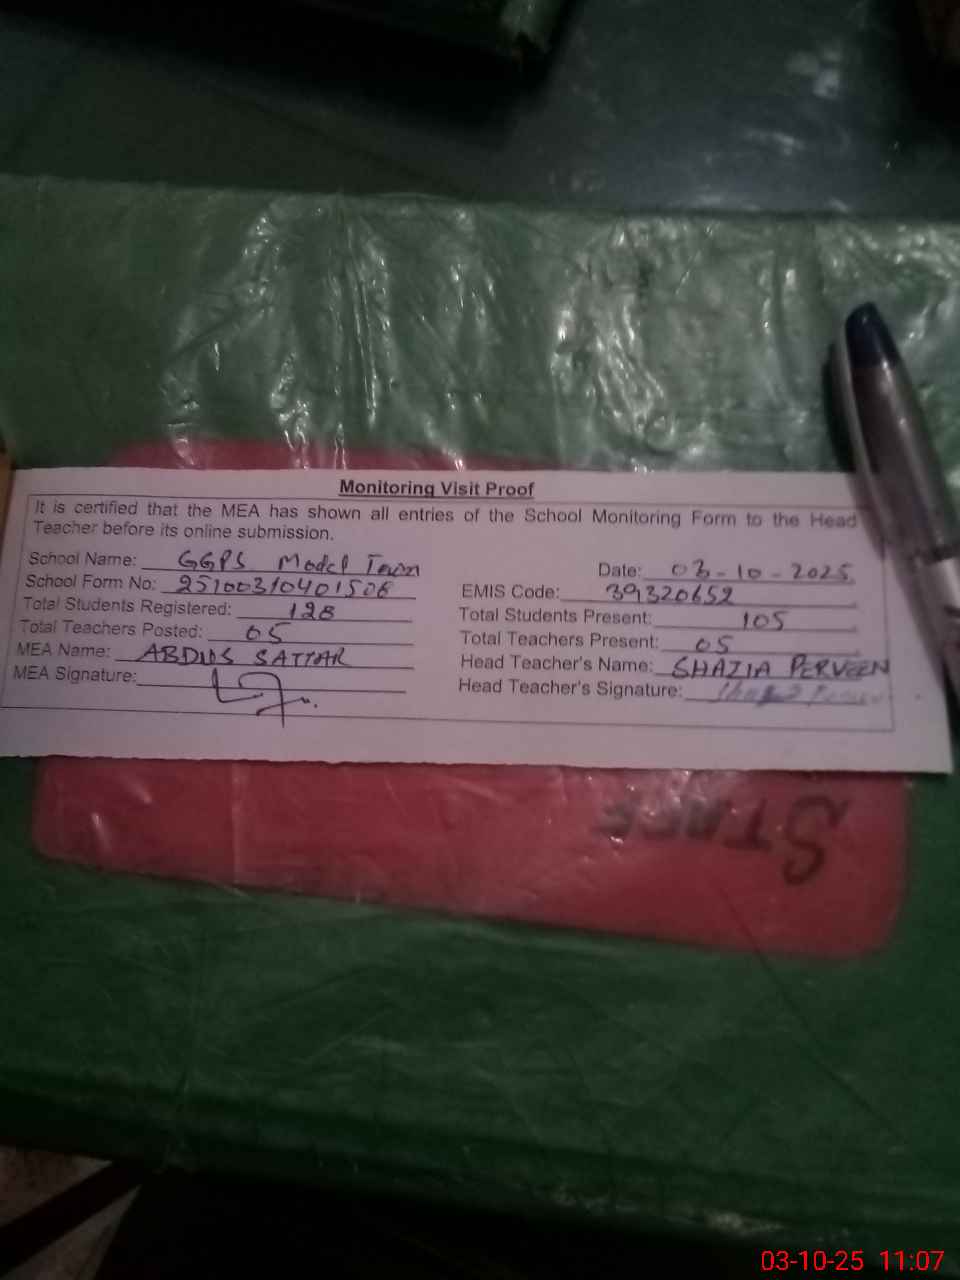 Monitoring Visit Proof
It is certified that the MEA has shown all entries of the School Monitoring Form to the Head
Teacher before its online submission.
School Name: GGPS Model Town
Date: 03-10-2025
School Form No: 25100310401508
EMIS Code: 39320652
Total Students Registered: 128
Total Students Present: 105
Total Teachers Posted: 05
Total Teachers Present: 05
MEA Name: ABDUS SATTAR
Head Teacher's Name: SHAZIA PERVEEN
MEA Signature:
Head Teacher's Signature:
STAFF
03-10-25 11:07